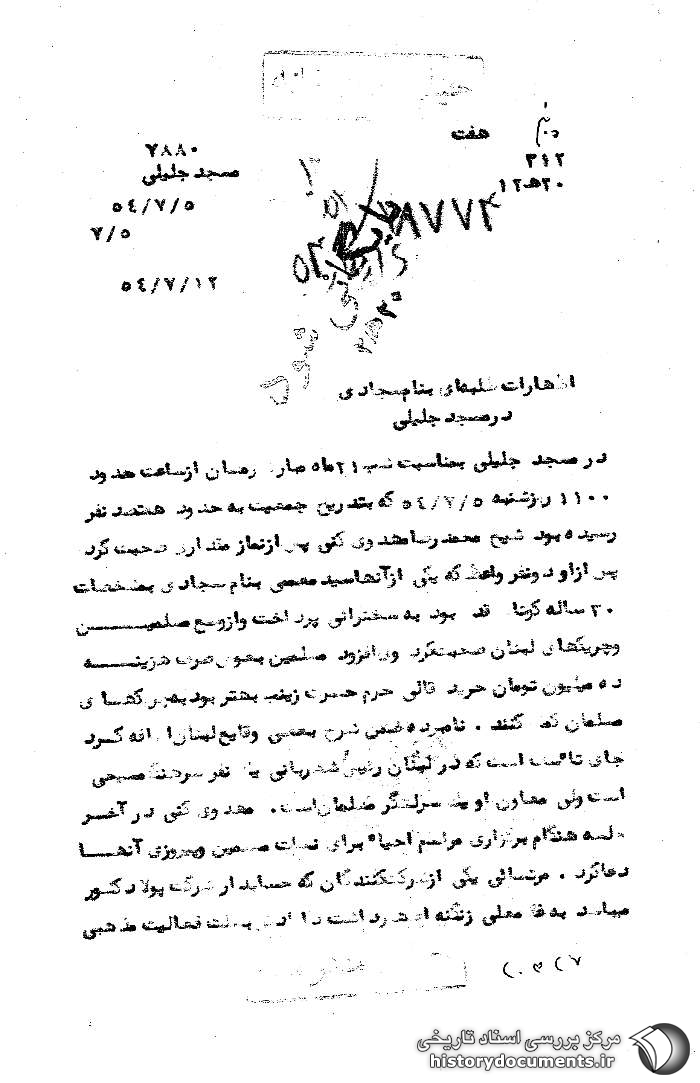 هفت
۳۱۲
۲۰ﻫ۱۲
۷۸۸۰
مسجد جلیلی
۵٤/۷/۵
۷/۵
۵٤/۷/۱۲
اظهارات طلبه‌ای بنام سجادی
در مسجد جلیلی
در مسجد جلیلی بمناسبت شب ۲۱ ماه مبارک رمضان از ساعت حدود
۱۱۰۰ روز شنبه ۵٤/۷/۵ که بتدریج جمعیت به حدود هفتصد نفر
رسیده بود شیخ محمد رضا مهدوی کنی پس از نماز مقداری صحبت کرد
پس از او دو نفر واعظ که یکی از آنها سید معممی بنام سجادی بمشخصات
۳۰ ساله کوتاه قد بود به سخنرانی پرداخت و از وضع مسلمین
و چریکهای لبنان صحبت کرد وی افزود مسلمین بعوض صرف هزینه
ده میلیون تومان خرید قالی حرم حضرت زینب بهتر بود به چریکهای
مسلمان کمک کنند . نامبرده ضمن شرح بعضی وقایع لبنان اضافه کرد
جای تاسف است که در لبنان رئیس شهربانی یک نفر سرهنگ مسیحی
است ولی معاون او یک سرلشگر مسلمان است . مهدوی کنی در آخر
جلسه هنگام برگزاری مراسم احیاء برای نجات مسلمین و پیروزی آنها
دعا کرد . یکی از شرکت‌کنندگان که حسابدار شرکت پولاد کشور
میباشد به زنگنه اظهار داشت بعلت فعالیت مذهبی
مرکز بررسی اسناد تاریخی
historydocuments.ir